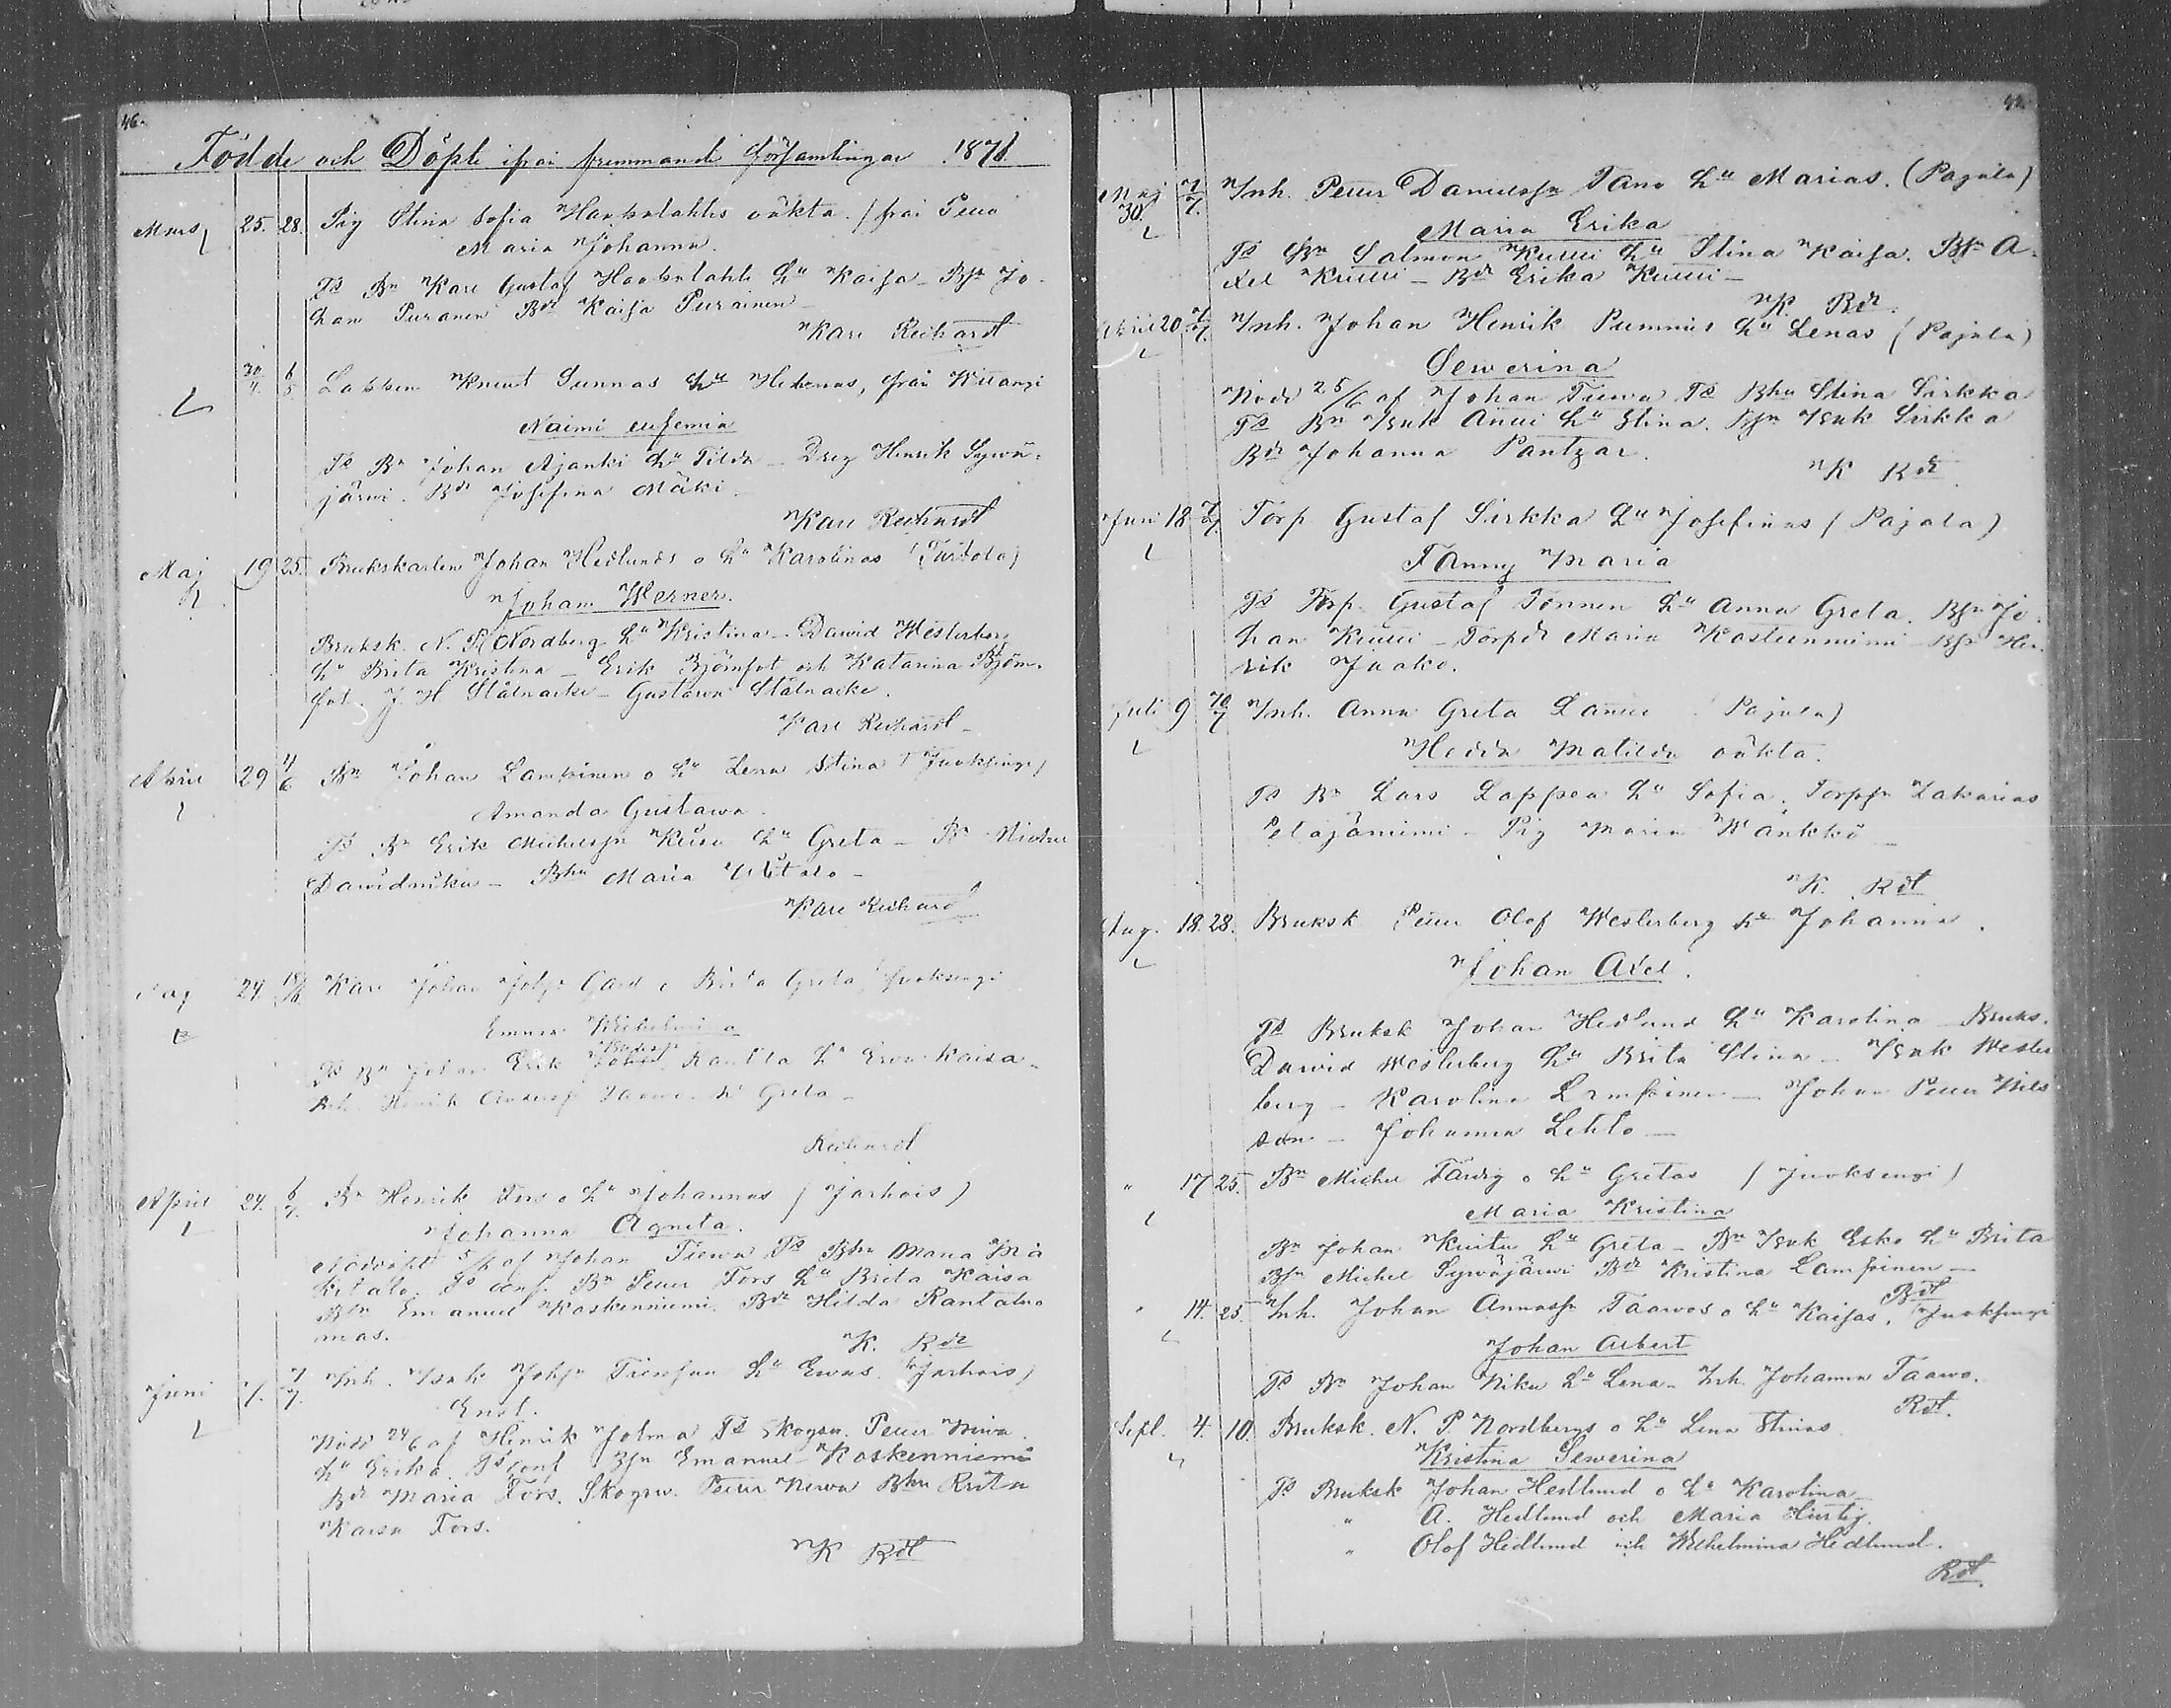 46.
Födde och Döpte ifrån fremmande församlingar 1876.
Mars 25. 28. Pig Stina Sofia Haapalahtis oäkta. (från Pello
Maria Johanna.
Ts Bn Karl Gustaf Haapalahti hu Kaisa - Bsn Jo-
han Puranen Bdr Kaisa Puranen
Karl Reichardt
30/4. 6/5 Lappen Knut Sunnas hu Helenas, från Wittangi
Naimi eufemia
Ts Bn Johan Ajanki hu Tilda - Dreg Henrik Sywä-
järwi. Bdr Josefina Mäki.
Karl Reichardt
Maj 19 25. Brukskarlen Johan Hedlunds o hu Karolinas (Turtola)
Johan Werner.
Bruksk. N. P. Nordberg hu Kristina - Dawid Westerberg
hu Brita Kristina - Erik Björnfot och Katarina Björn-
fot. J. H Stålnacke - Gustawa Stålnacke.
Karl Reichardt
April 29 4/6 Bn Johan Lampinen o hu Lena Stina (Juoksengi)
Amanda Gustawa.
Ts Bn Erik Michelsn hu Greta -
- Bhu Maria
Karl Reichardt
24. 18/6 Karl Johan Johsn o Brita Greta, Juoksengi
Emma Wilhelmina
Ts Bn Johan Erik Rantta hu Ewa Kaisa -
Inh. Henrik Andersn hu Greta -
Reichardt
April 24. 6/7. Bn Henrik Fors o hu Johannas (Jarhois)
Johanna Agneta.
Nöddöpt af Johan Tiewa Ts Bhu Maria
Ts conf Bn Petter Fors hu Brita Kaisa
Bsn Emanuel Koskenniemi. Bdr Hilda Rantatuo
mas.
K. Rdt
Juni 7/7. Inh. Isak Johsn hu Ewas. (Jarhois)
Enel.
Nödd 24/6 af Henrik Jolma Ts Skogsw. Petter Niwa.
hu Erika. Ts conf Bsn Emanuel Koskenniemi
Bdr Maria Fors. Skogsw. Petter Niwa Bhu Brita
Kaisa Fors.
K Rdt
Maj 30. 7/7. Inh. Petter Danielssn Tano hu Marias. (Pajala)
Maria Erika
Ts Bn Salmon Kutti hu Stina Kaisa. Bsn A-
xel Kutti - Bdr Erika Kutti -
K. Rdt.
April 20 7/7. Inh. Johan Henrik hu Lenas (Pajala)
Sewerina
Nödd 25/6 af Johan Tiewa Ts Bhu Stina Sirkka
Ts Bn Isak Anui hu Stina. Bsn Isak Sirkka
Bdr Johanna Pantzar.
K Rdt
Juni 18 7/7. Torp Gustaf Sirkka hu Josefinas (Pajala)
Fanny Maria
Ts Torp. Gustaf hu Anna Greta. Bsn Jo-
han Kutti - Torpdr Maria Kostenniemi - Bsn Hen-
rik Jaako.
Juli 9 10/7 Inh. Anna Greta (Pajala)
Hedda Matilda oäkta.
Ts Bn Lars Lappea hu Sofia. Torpsn Zakarias
Petäjäniemi - Pig Maria Wänkkö -
K. Rdt
Aug. 18. 28. Bruksk Petter Olof Westerberg hu Johanna.
Johan Axel.
Ts Bruksk Johan Hedlund hu Karolina - Bruks.
Dawid Westerberg hu Brita Stina - Isak Wester
berg - Karolina Lampinen - Johan Petter Nils
son - Johanna Lehto -
" 17 25. Bn Michel Färdig o hu Gretas (Juoksengi)
Maria Kristina
Bn Johan Kuitu hu Greta - Bn Isak Esko hu Brita
Bsn Michel Sywäjärwi Bdr Kristina Lampinen -
Rdt
" 14. 25. Inh. Johan Annassn Taawos o hu Kaisas, (Juoksengi
Johan Albert
Ts Bn Johan Niku hu Lena - Inh. Johanna Taawo.
Rdt.
Sept. 4. 10. Bruksk. N. P. Nordbergs o hu Lena Stinas
Kristina Sewerina
Ts Bruksk Johan Hedlund o hu Karolina
" A. Hedlund och Maria Hurtig.
" Olof Hedlund och Wilhelmina Hedlund.
Rdt.